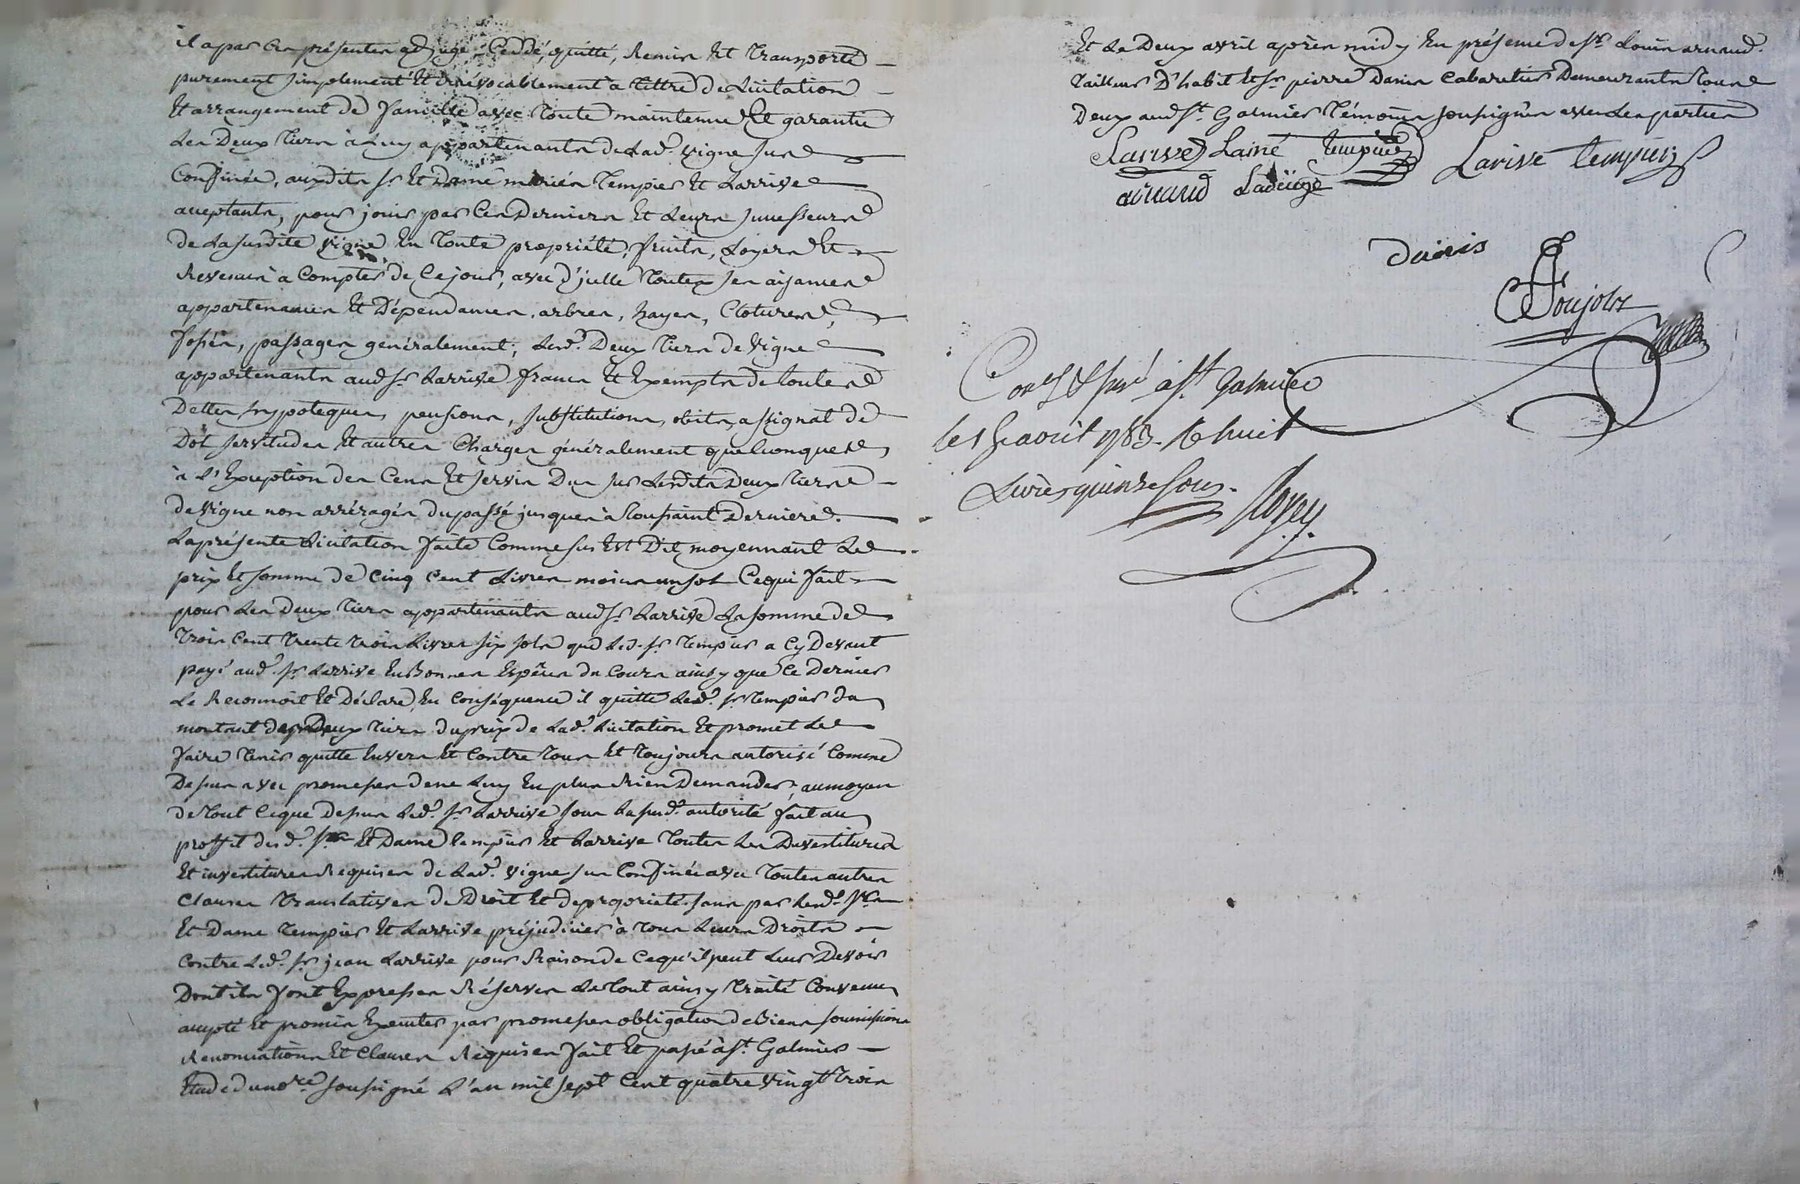 il a par ces présentes adjugé, Ceddé, quitté, Remis Et Transporté
purement simplement Et irrévocablement à tittre de Licitation
Et arrangement de famille avec Toute maintenue Et garantie
Les Deux Tiers à Luy appartenants de Lad.e vigne sus
Confinée, auxdits Sr Et Dame mariés Tempier Et Larrive
acceptants, pour jouir par Ces Derniers Et Leurs successeurs
de La susdite vigne En Toute propriété, fruits, Loyers Et
Revenus a Compter de Ce jour, avec d'icelle Toutes ses aisances
appartenances Et Dépendances, arbres, hayes, Clotures,
fossés, passages généralement; Lesd.s Deux Tiers de vigne
appartenants aud Sr Larrive francs Et Exempts de Toutes
Dettes hypoteques, pensions, substitutions, obits, assignat de
Dot servitudes Et autres Charges généralement quelconques
à L'Exception des Cens Et servis Dus sur Lesdits Deux Tiers
de vigne non arréragés du passé jusques à Toussaint Derniere.
La présente Licitation faite Comme sus Est Dit moyennant Le
prix Et somme de Cinq Cent Livres moins un sol Ce qui fait
pour Les Deux Tiers appartenants aud Sr Larrive La somme de
Trois Cent Trente Trois Livres six sols que Led. Sr Tempier a Cy Devant
payé aud. Sr Larrive En Bonnes Espèces du Cours ainsy que Ce Dernier
Le Reconnoit Et Déclare, En Conséquence il quitte Led. Sr Tempier du
montant des Deux Tiers du prix de Lad.e Licitation Et promet Le
faire Tenir quitte Envers Et Contre Tous Et Toujours autorisé Comme
Dessus avec promesses de ne Luy En plus Rien Demander, au moyen
de Tout Ce que Dessus Led. Sr Larrive sous La sud.e autorité fait au
proffit desd. Sr Et Dame Tempier Et Larrive Toutes Les Devestitures
Et investitures Requises de Lad.e vigne sus Confinée avec Toutes autres
Clauses Translatives de Droit Et de propriété sans par Lesd. Srs
Et Dame Tempier Et Larrive préjudicier à Tous Leurs Droits
Contre Led. Sr jean Larrive pour Raison de Ce qu'il peut Leur Devoir
Dont ils font Expresses Réserves Le Tout ainsy Traité Convenu
accepté Et promis Executer par promesses obligation de Biens soumissions
Renonciations Et Clauses Requises fait Et passé à St. Galmier
Etude du no.re soussigné L'an mil sept Cent quatre vingt Trois
Et Le Deux avril après midy En présence de Sr Louis arnaud
Tailleur D'habit Et Sr pierre Danis Cabaretier Demeurants Tous
Deux aud St. Galmier Témoins soussignés avec Les parties
Larive Lainé Tempier
Larive Tempier
arnaud
Danis
Soujols
Con.lé & Jnsi.né à St Galmier
le août 1783. huit
Livres quinze sous.